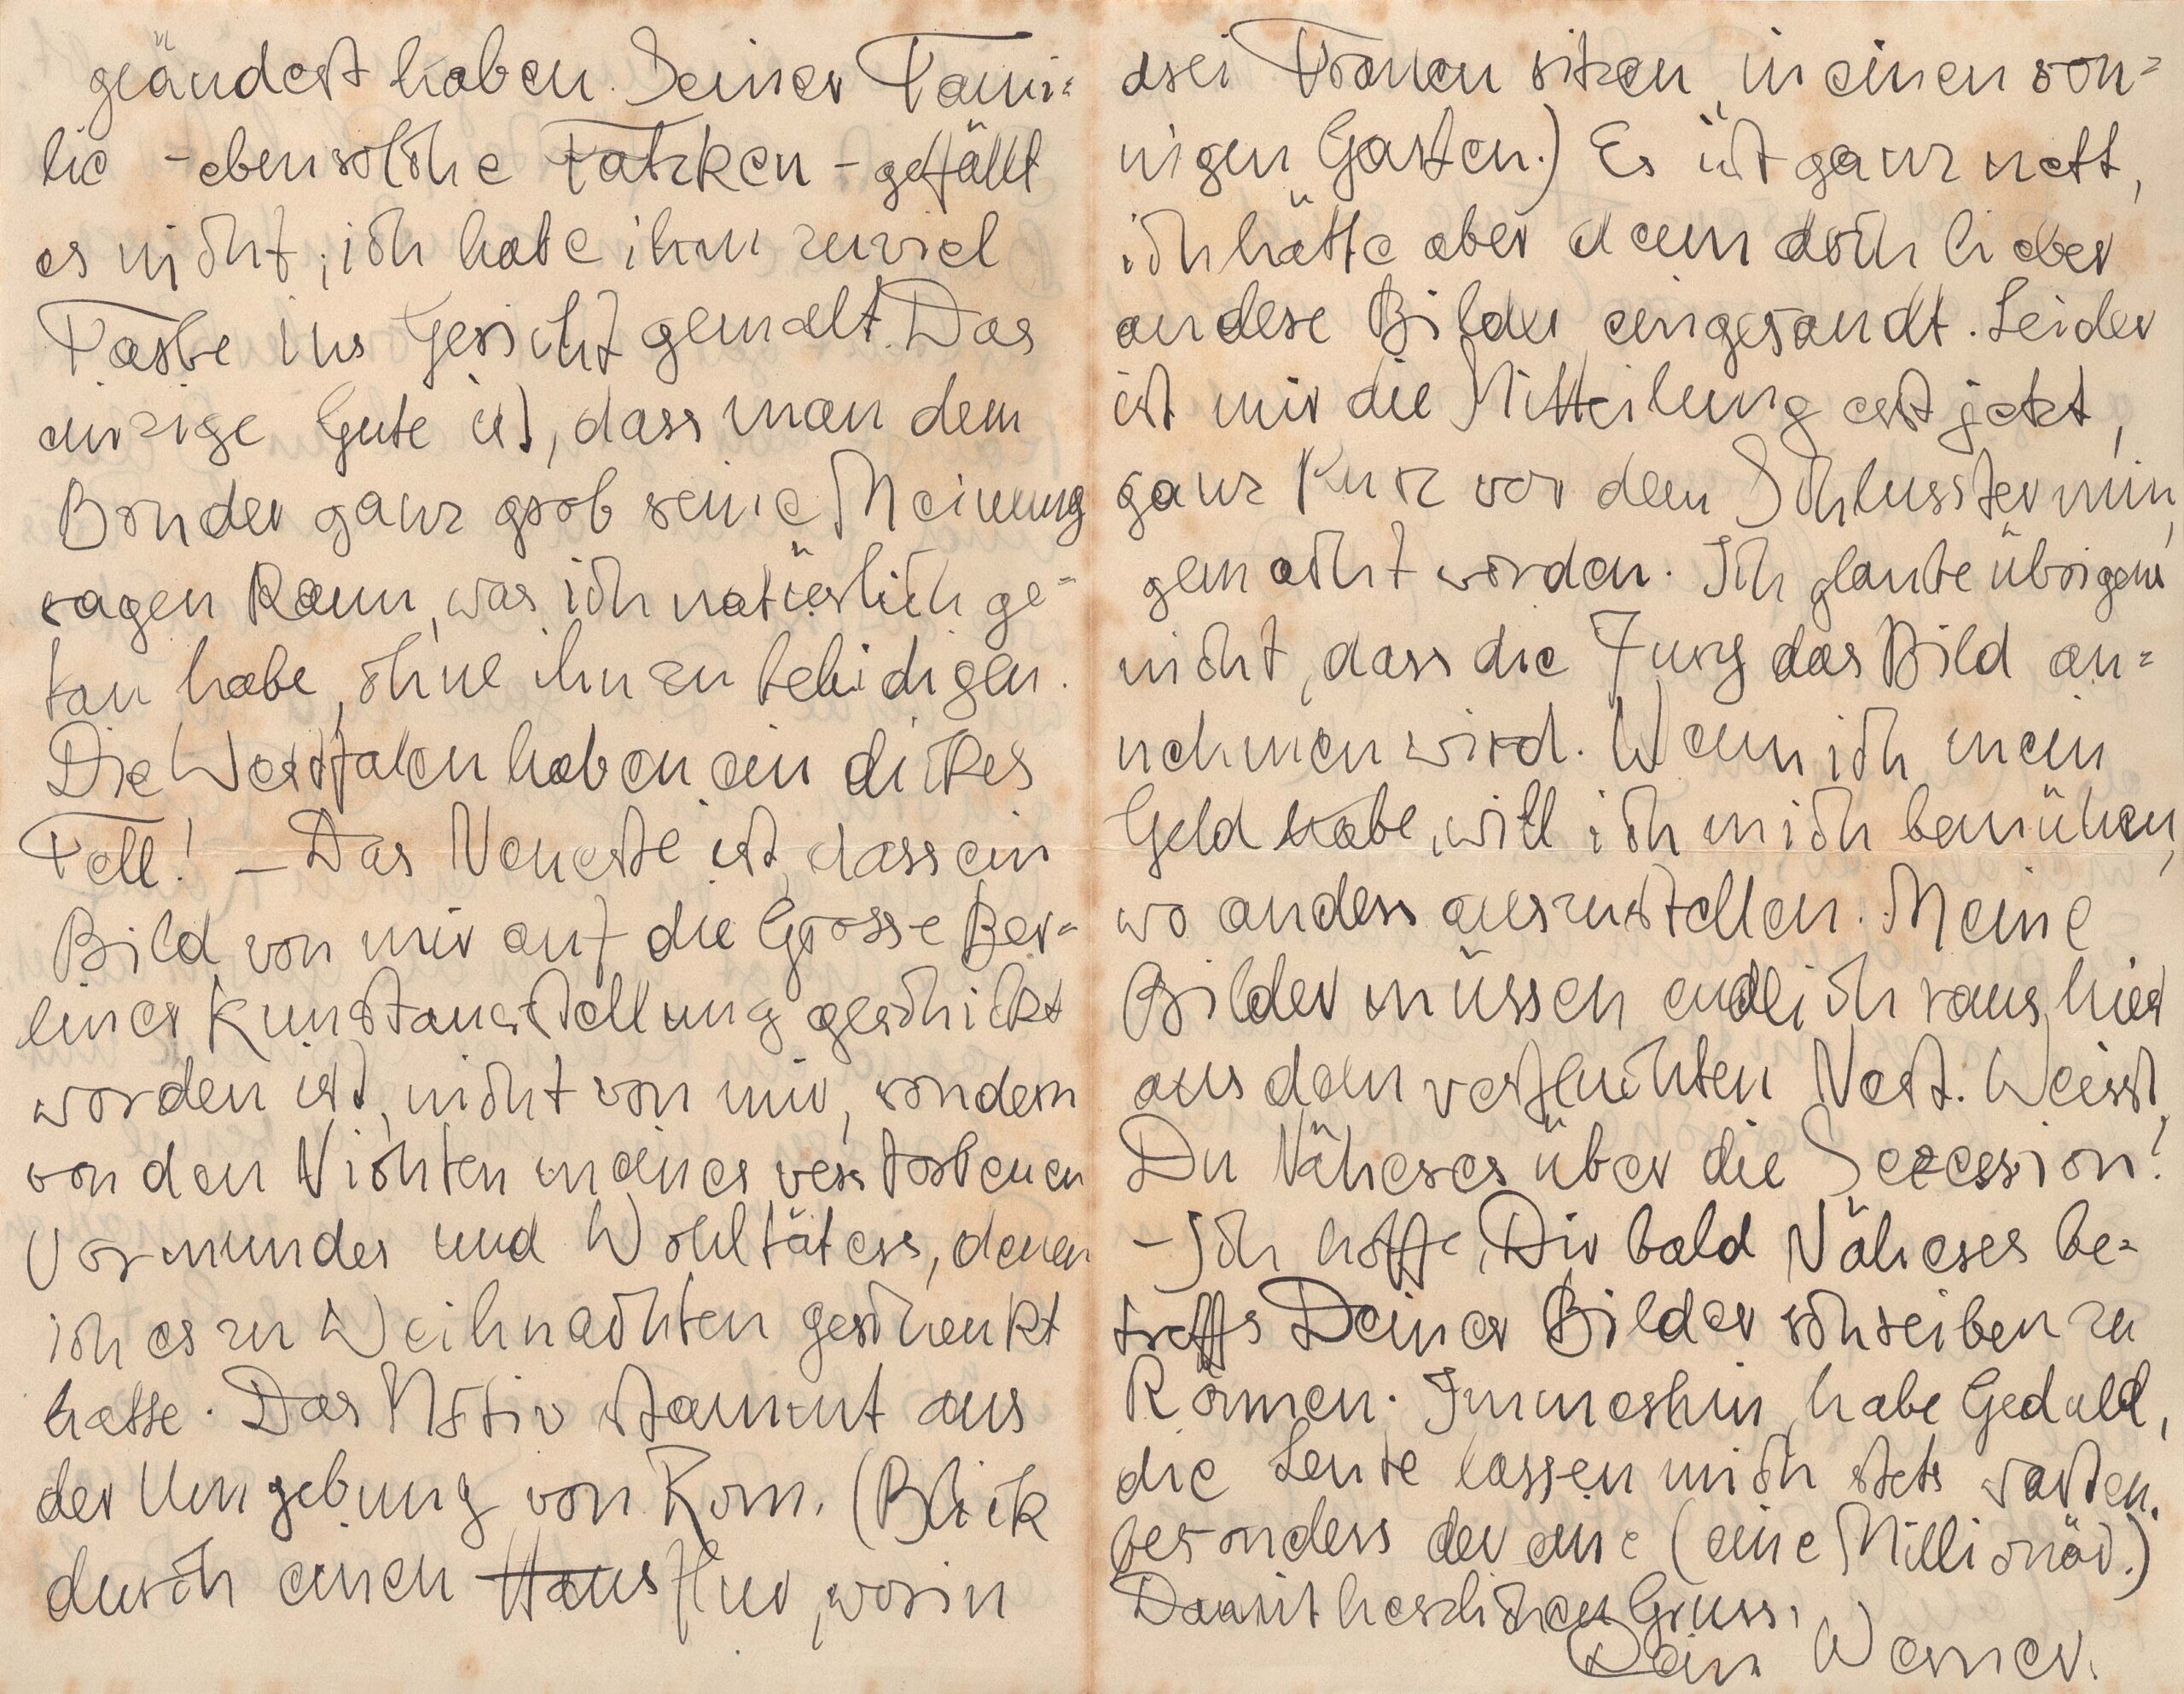 geändert haben. Seiner Fami=
lie - ebensolche Fatzken - gefällt
es nicht, ich habe ihm zuviel
Farbe ins Gesicht gemalt. Das
einzige Gute ist, dass man dem
Bruder ganz grob seine Meinung
sagen kann, was ich natürlich ge=
tan habe, ohne ihn zu beleidigen.
Die Westfalen haben ein dickes
Fell! - Das Neueste ist, dass ein
Bild von mir auf die Grosse Ber=
liner Kunstausstellung geschickt
worden ist, nicht von mir, sondern
von den Nichten meines verstorbenen
Vormundes und Wohltäters, denen
ich es zu Weihnachten geschenkt
hatte. Das Motiv stammt aus
der Umgebung von Rom. (Blick
durch einen Hausflur, worin
drei Frauen sitzen, in einen son=
nigen Garten.) Es ist ganz nett,
ich hätte aber dann doch lieber
andere Bilder eingesandt. Leider
ist mir die Mitteilung erst jetzt,
ganz kurz vor dem Schlusstermin,
gemacht worden. Ich glaube übrigens
nicht, dass die Jury das Bild an=
nehmen wird. Wenn ich mein
Geld habe, will ich mich bemühen,
wo anders auszustellen. Meine
Bilder müssen endlich raus hier
aus dem verfluchten Nest. Weisst
Du Näheres über die Sezession?
- Ich hoffe, Dir bald Näheres be=
treffs Deiner Bilder schreiben zu
können. Immerhin, habe Geduld,
die Leute lassen mich stets warten.
besonders der eine (eine Millionär.)
Damit herzlichen Gruss,
Dein Werner.